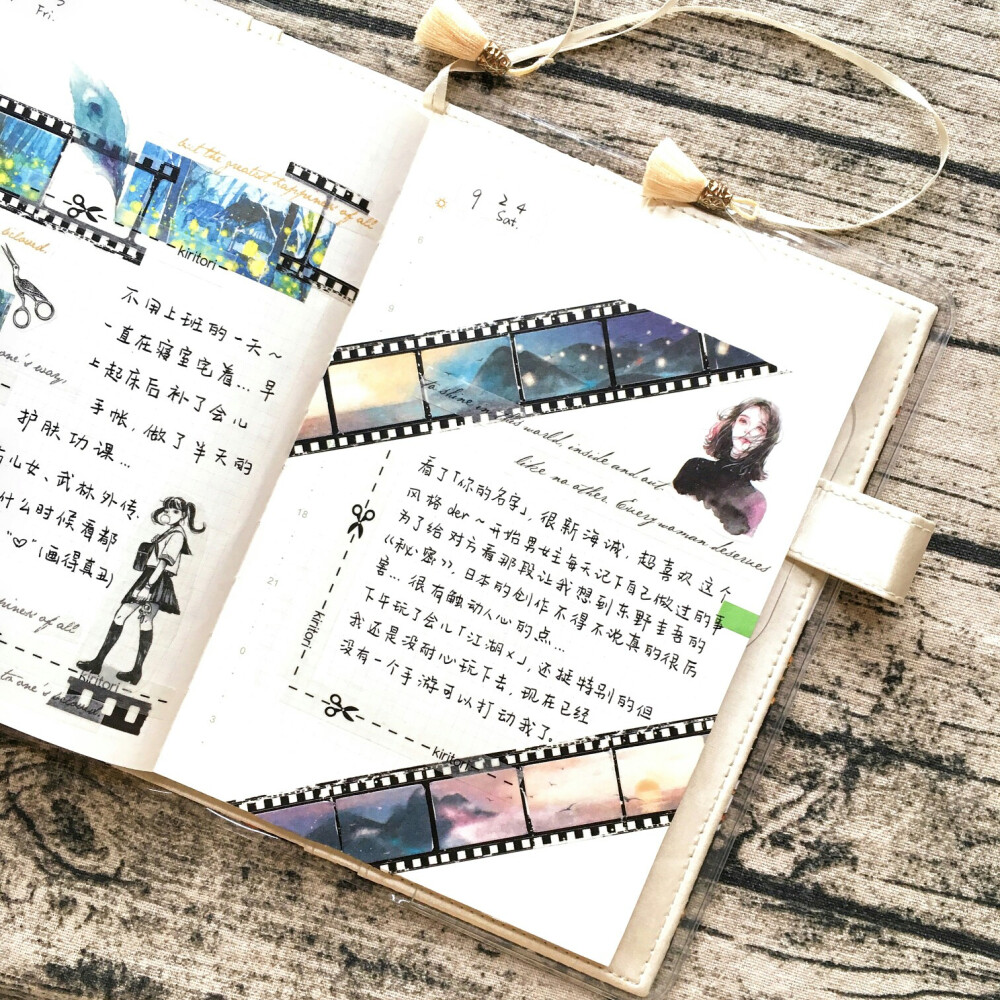 Fri.
but the greatest happiness of all
kiritori
biloved.
不用上班的一天~
一直在寝室宅着...早
上起床后补了会儿
手帐，做了半天的
护肤功课...
儿女、武林外传.
什么时候看都
"♡"(画得真丑)
one's way,
piness of all
kiritori
to one's biloved.
9 24
Sat.
8
9
18
21
0
3
to shine in this world, inside and out
like no other. Every woman deserves
看了「你的名字」，很新海诚. 超喜欢这个
风格der~开始男女主每天记下自己做过的事
为了给对方看那段让我想到东野圭吾的
《秘密》，日本的创作不得不说真的很厉
害... 很有触动人心的点...
下午玩了会儿「江湖x」，还挺特别的但
我还是没耐心玩下去，现在已经
没有一个手游可以打动我了。
kiritori
kiritori